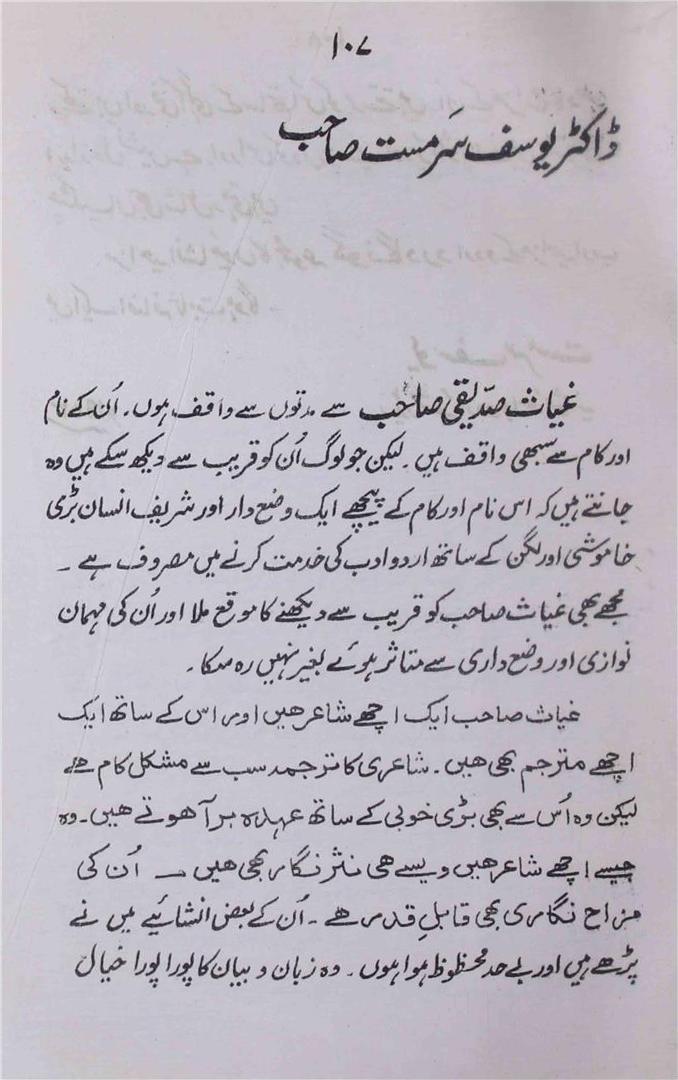 ۱۰۷
ڈاکٹر یوسف سَرمست صاحب
غیاث صدّیقی صاحب سے مدتوں سے واقف ہوں۔ اُن کے نام
اور کام سے سبھی واقف ہیں۔ لیکن جو لوگ اُن کو قریب سے دیکھ سکے ہیں وہ
جانتے ہیں کہ اس نام اور کام کے پیچھے ایک وضع دار اور شریف انسان بڑی
خاموشی اور لگن کے ساتھ اردو ادب کی خدمت کرنے میں مصروف ہے ۔
مجھے بھی غیاث صاحب کو قریب سے دیکھنے کا موقع ملا اور اُن کی مہمان
نوازی اور وضع داری سے متاثر ہوئے بغیر نہیں رہ سکا۔
غیاث صاحب ایک اچھے شاعر ہیں اور اس کے ساتھ ایک
اچھے مترجم بھی ہیں۔ شاعری کا ترجمہ سب سے مشکل کام ہے
لیکن وہ اُس سے بھی بڑی خوبی کے ساتھ عہدہ برآ ہوتے ہیں۔ وہ
جیسے اچھے شاعر ہیں ویسے ہی نثر نگار بھی ہیں ۔ اُن کی
مزاح نگاری بھی قابلِ قدر ہے ۔ اُن کے بعض انشائیے میں نے
پڑھے ہیں اور بے حد محظوظ ہوا ہوں۔ وہ زبان و بیان کا پورا پورا خیال